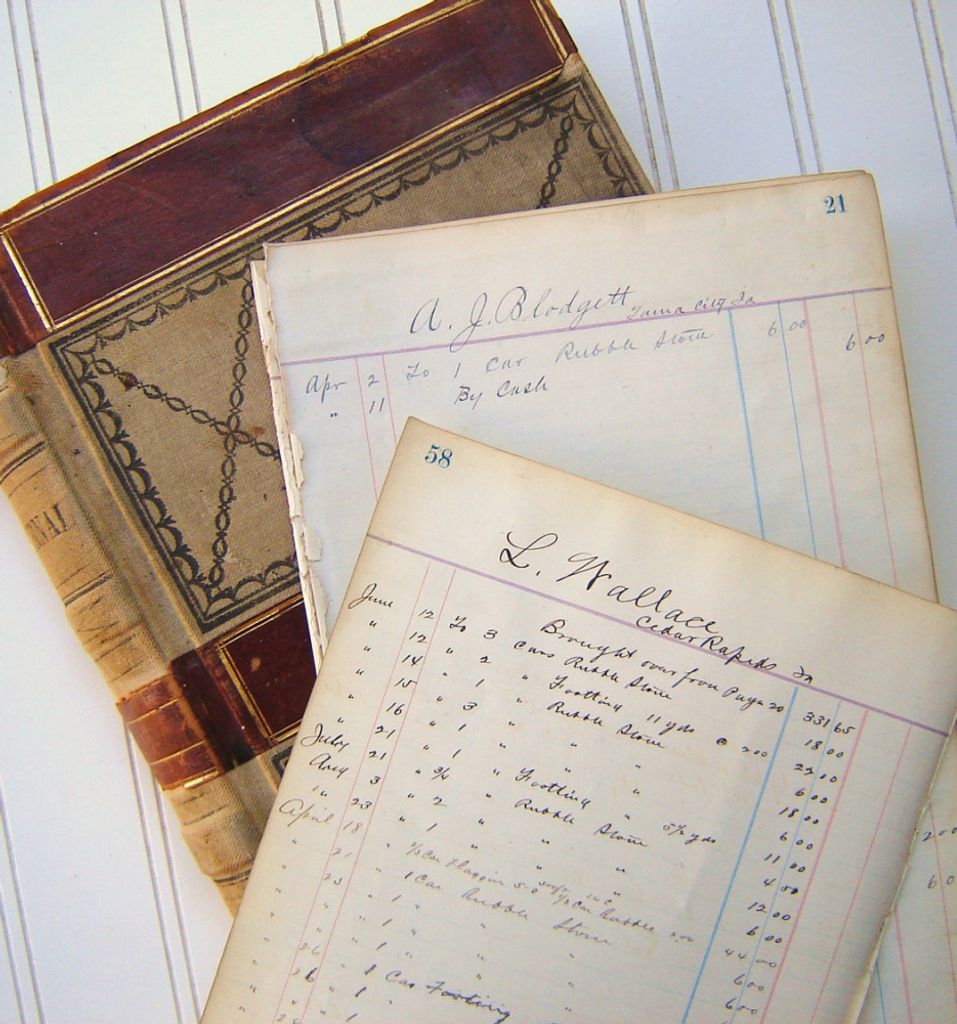 NAL
21
A. J. Blodgett Tama City Ia
Apr 2 To 1 Car Rubble Stone 6 00
" 11 By Cash 6 00
58
L. Wallace
Cedar Rapids Ia
Brought over from Page 20 331 65
June 12 To 3 Cars Rubble Stone 18 00
" 12 " 2 " Footing 11 yds @ 200 22 00
" 14 " 1 " Rubble Stone 6 00
" 15 " 3 " " " 18 00
" 16 " 1 " " " 6 00
July 21 " 1 " Footing 5 1/2 yds 11 00
" 21 " 3/4 " Rubble Stone 4 50
Aug 3 " 2 " " " 12 00
" 23 " 1 " " " 6 00
April 18 44 00
" 21 " 1 Car Rubble Stone 6 00
" 23 " 1 " " " 6 00
" 26 " 1 " "
" 26 " 1 Car Footing
" 1 "
200
60